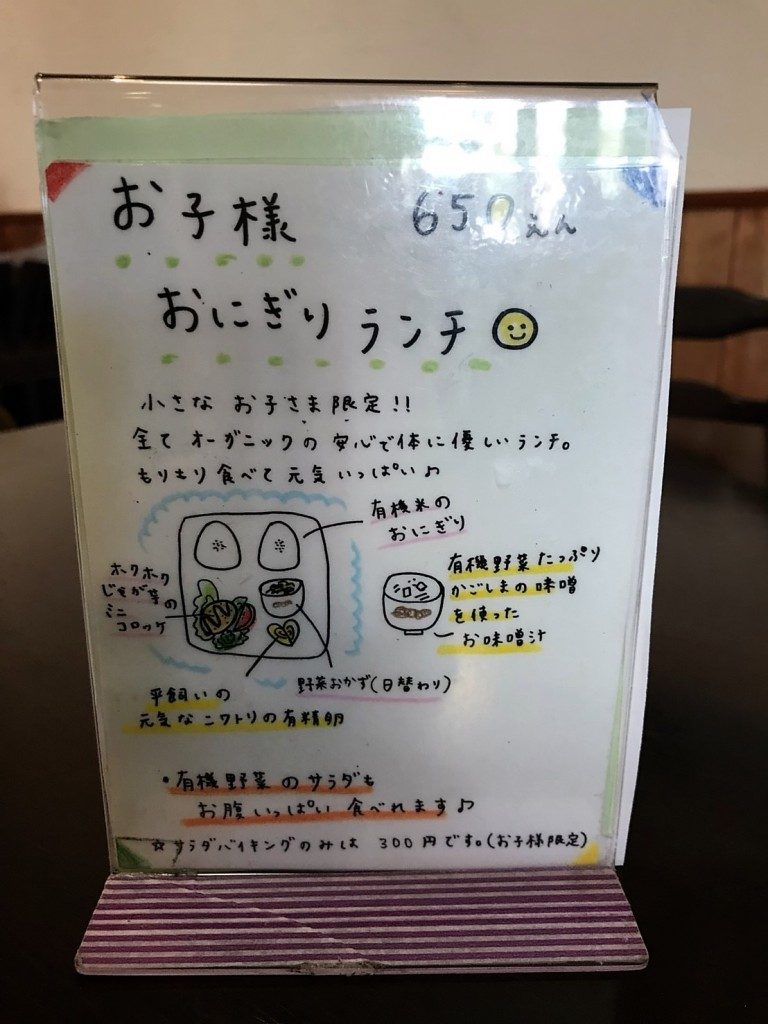 お子様 650えん
おにぎりランチ
小さな お子さま限定!!
全て オーガニックの 安心で体に優しいランチ。
もりもり食べて元気いっぱい♪
有機米の
おにぎり
ホクホク
じゃが芋の
ミニ
コロッケ
有機野菜たっぷり
かごしまの味噌
を使った
お味噌汁
野菜おかず(日替わり)
平飼いの
元気なニワトリの有精卵
・有機野菜のサラダも
お腹いっぱい 食べれます♪
☆サラダバイキングのみは 300円です。(お子様限定)